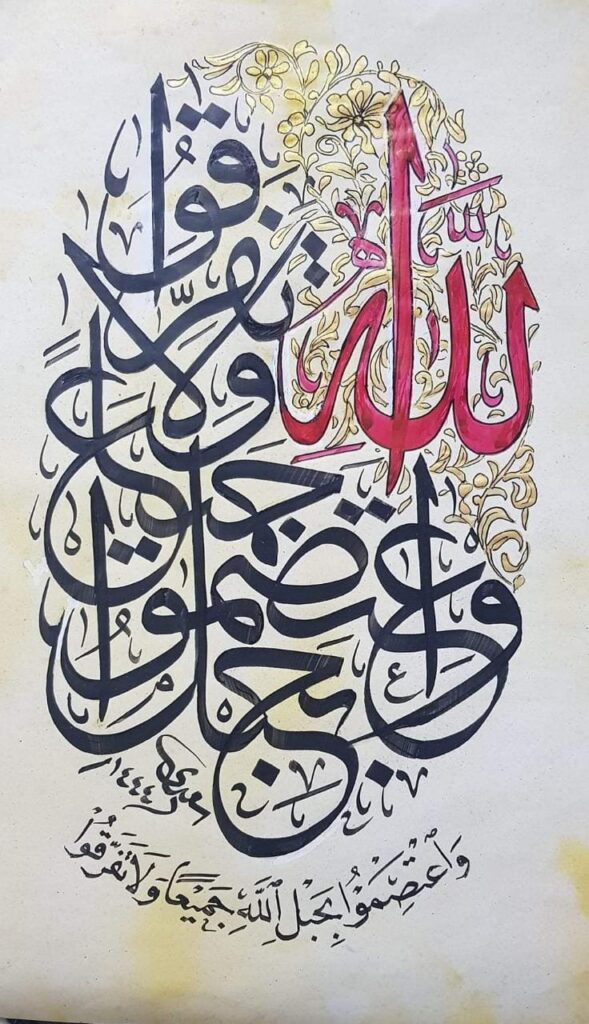 واعتصموا بحبل الله جميعا ولا تفرقوا
١٤٤٤
وَاعْتَصِمُوْا بِحَبْلِ اللَّهِ جَمِيْعًا وَلَا تَفَرَّقُوْا